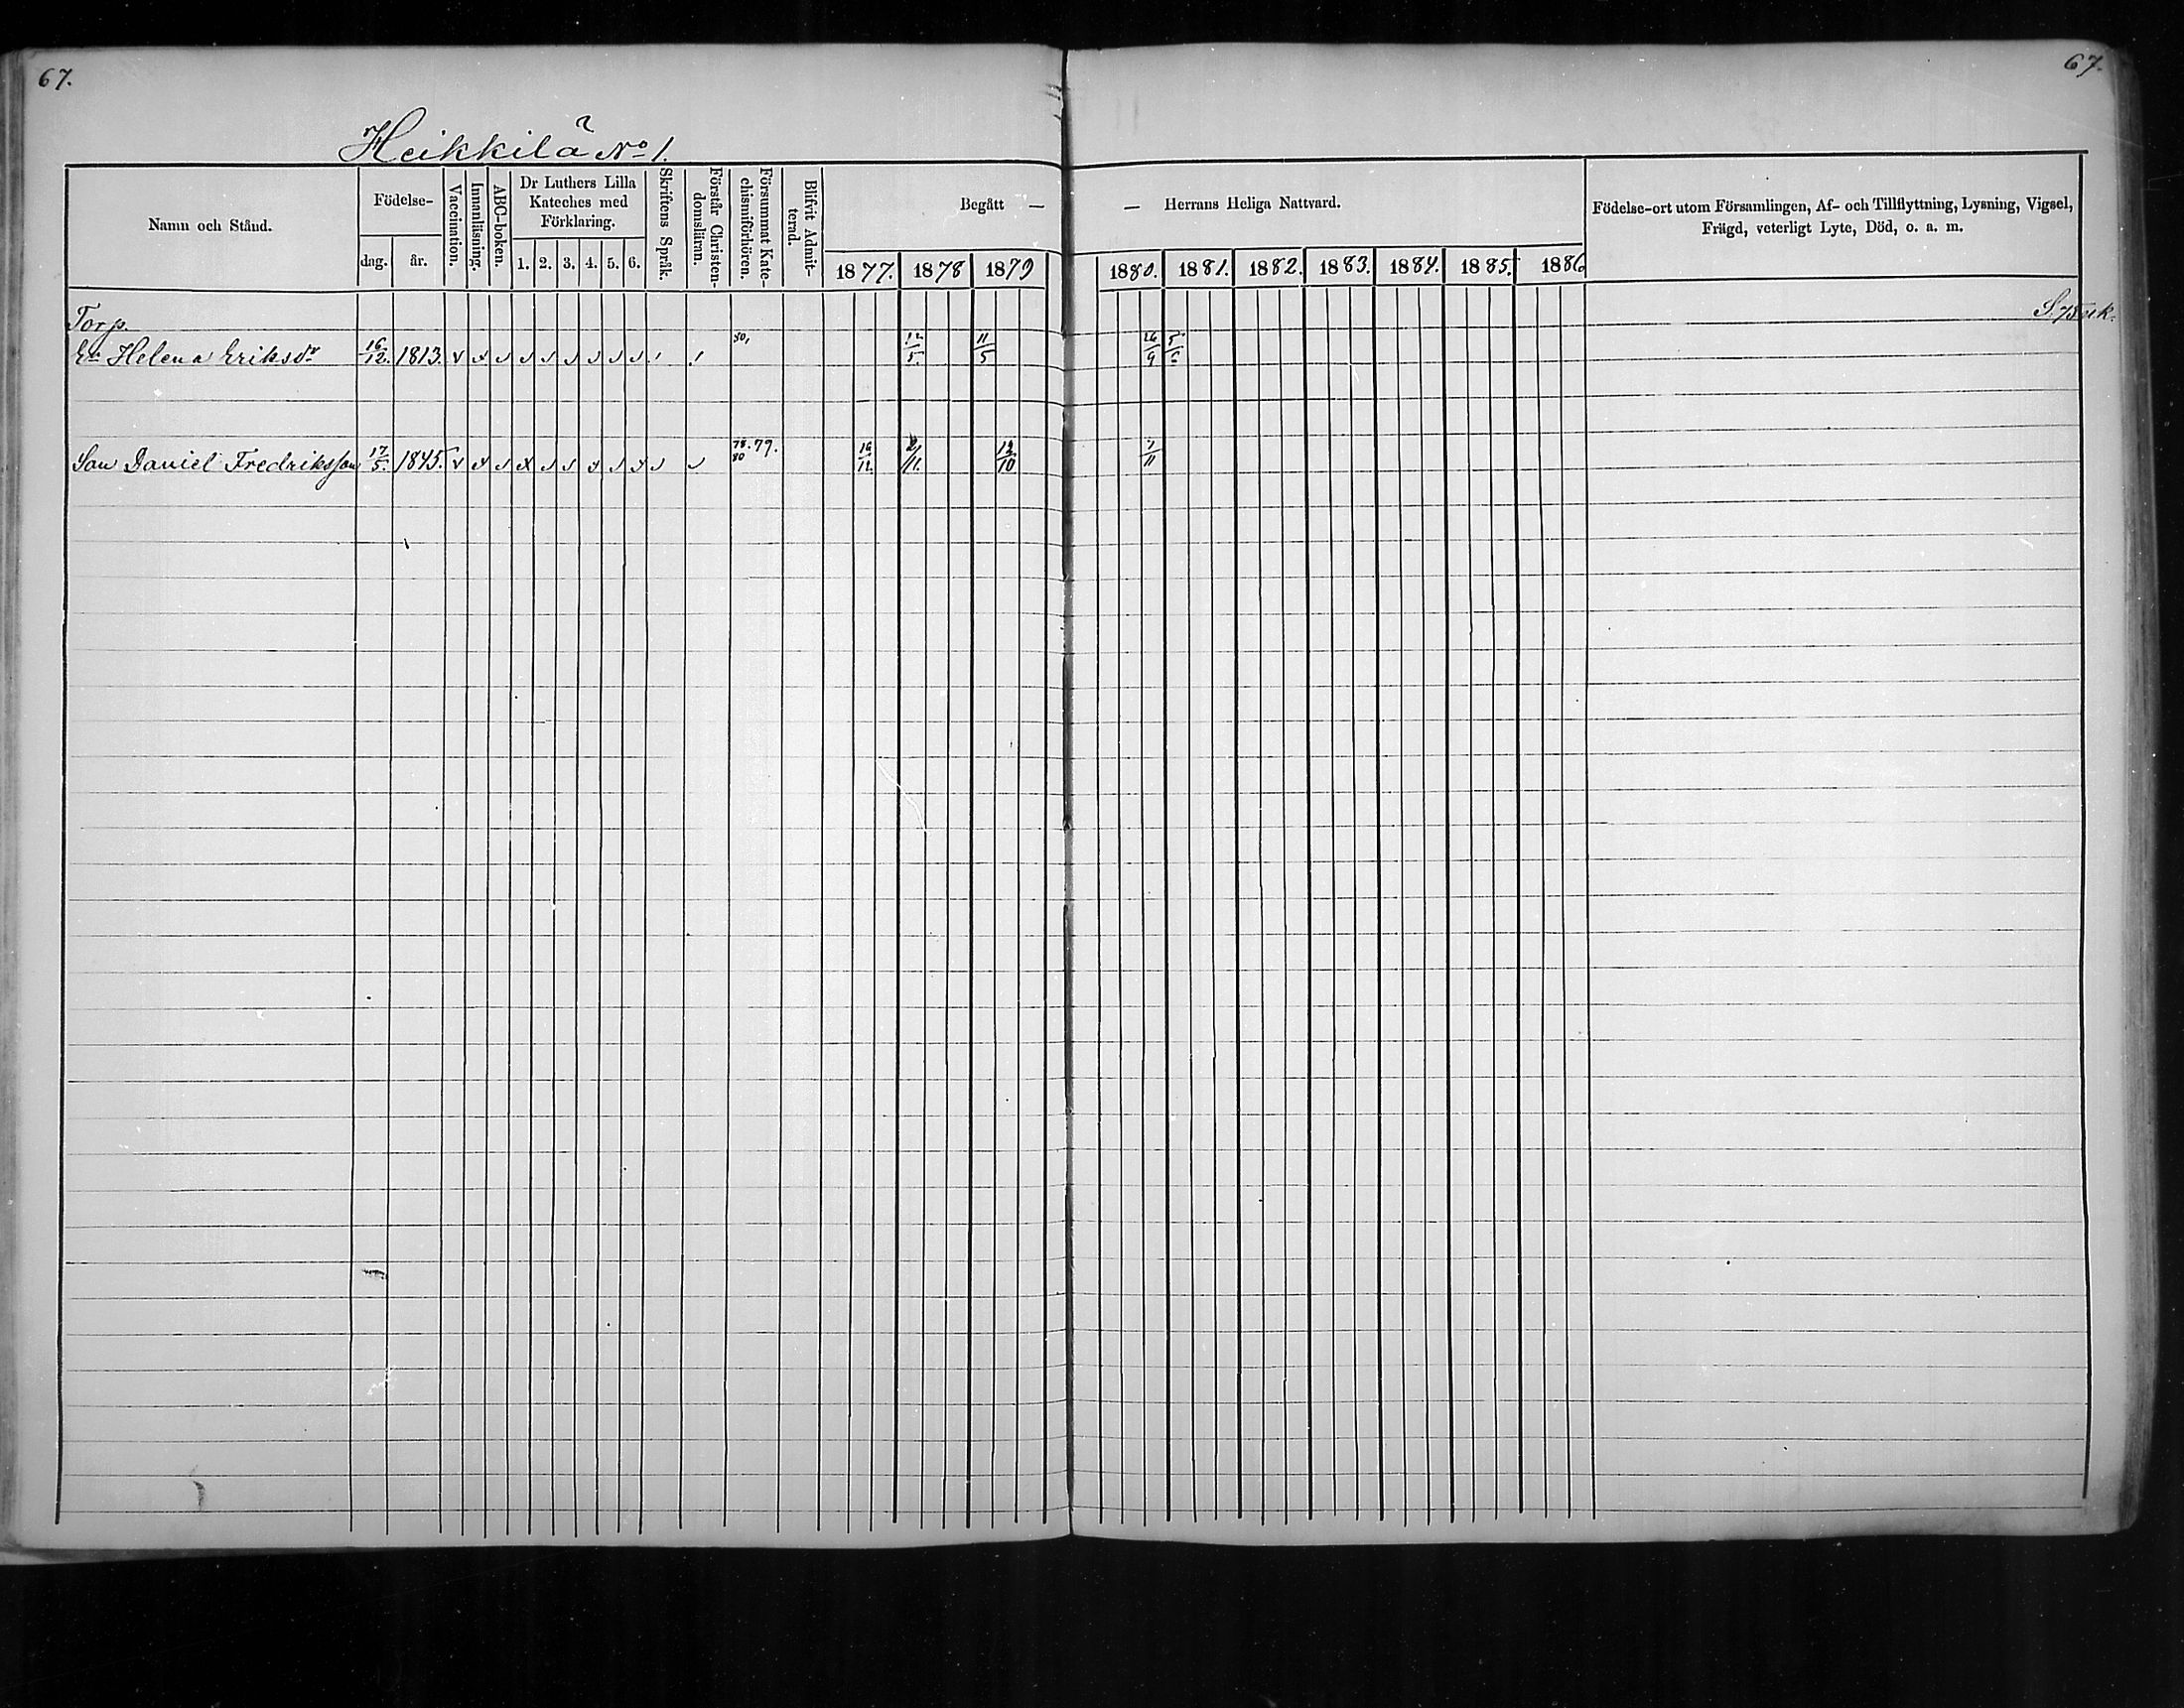 67.
67.
Heikkilä No 1.
Namn och Stånd.
Födelse-
dag.
år.
Vaccination.
Innanläsning.
ABC-boken.
Dr Luthers Lilla
Kateches med
Förklaring.
1. 2. 3. 4. 5. 6.
Skriftens Språk.
Förstår Christen-
domsläran.
Försummat Kate-
chismiförhören.
Blifvit Admit-
terad.
Begått —
— Herrans Heliga Nattvard.
1877. 1878 1879 1880. 1881. 1882. 1883. 1884. 1885. 1886
Födelse-ort utom Församlingen, Af- och Tillflyttning, Lysning, Vigsel,
Frägd, veterligt Lyte, Död, o. a. m.
Torp.
Helena Eriksdr 16/12. 1813. 12/5. 11/5 26/9
Son Daniel Fredriksson 17/5. 1845. 78. 79. 80 16/12. 12/10 7/11